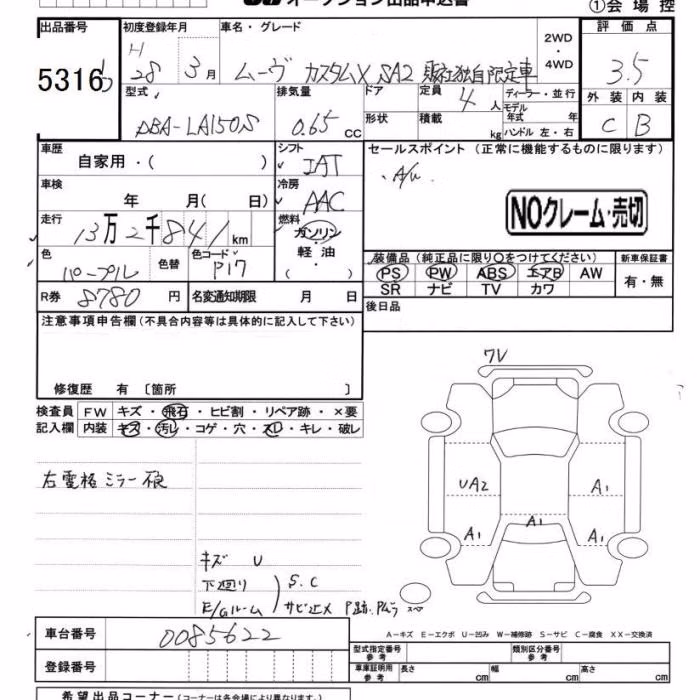 オークション出品申込書
①会場控
出品番号 初度登録年月 車名・グレード 評価点
5316 H 28年 3月 ムーヴ カスタムX SA2 販社独自限定車 2WD・4WD 3.5
型式 排気量 ドア 定員 4人 ディーラー・並行 外装 内装
DBA-LA150S 0.65 CC 形状 積載 kg モデル年式 年 ハンドル 左・右 C B
車歴 自家用・( ) シフト IAT セールスポイント (正常に機能するものに限ります)
車検 年 月( 日) 冷房 AAC ・A/W
NOクレーム・売切
走行 13万2千841km 燃料 ガソリン・軽油・( )
色 パープル 色替 色コード P17
装備品 (純正品に限り○をつけてください) 新車保証書
PS PW ABS エアB AW 有・無
SR ナビ TV カワ
R券 8780円 名変通知期限 月 日 後日品
注意事項申告欄(不具合内容等は具体的に記入して下さい)
修復歴 有 〔箇所 〕
検査員 FW キズ・飛石・ヒビ割・リペア跡・×要
記入欄 内装 キズ・汚レ・コゲ・穴・スレ・キレ・破レ
7V
左電格ミラー 損
UA2 A1
A1 A1 A1
キズ U
下廻り S.C
E/Gルーム サビ止メ P跡.Pムラ スペア
車台番号 0085622
A-キズ E-エクボ U-凹み W-補修跡 S-サビ C-腐食 XX-交換済
型式指定番号 参考 類別区分番号 参考
登録番号
車庫証明用 参考 長さ cm 幅 cm 高さ cm
希望出品コーナー(コーナーは各会場により異なります。)